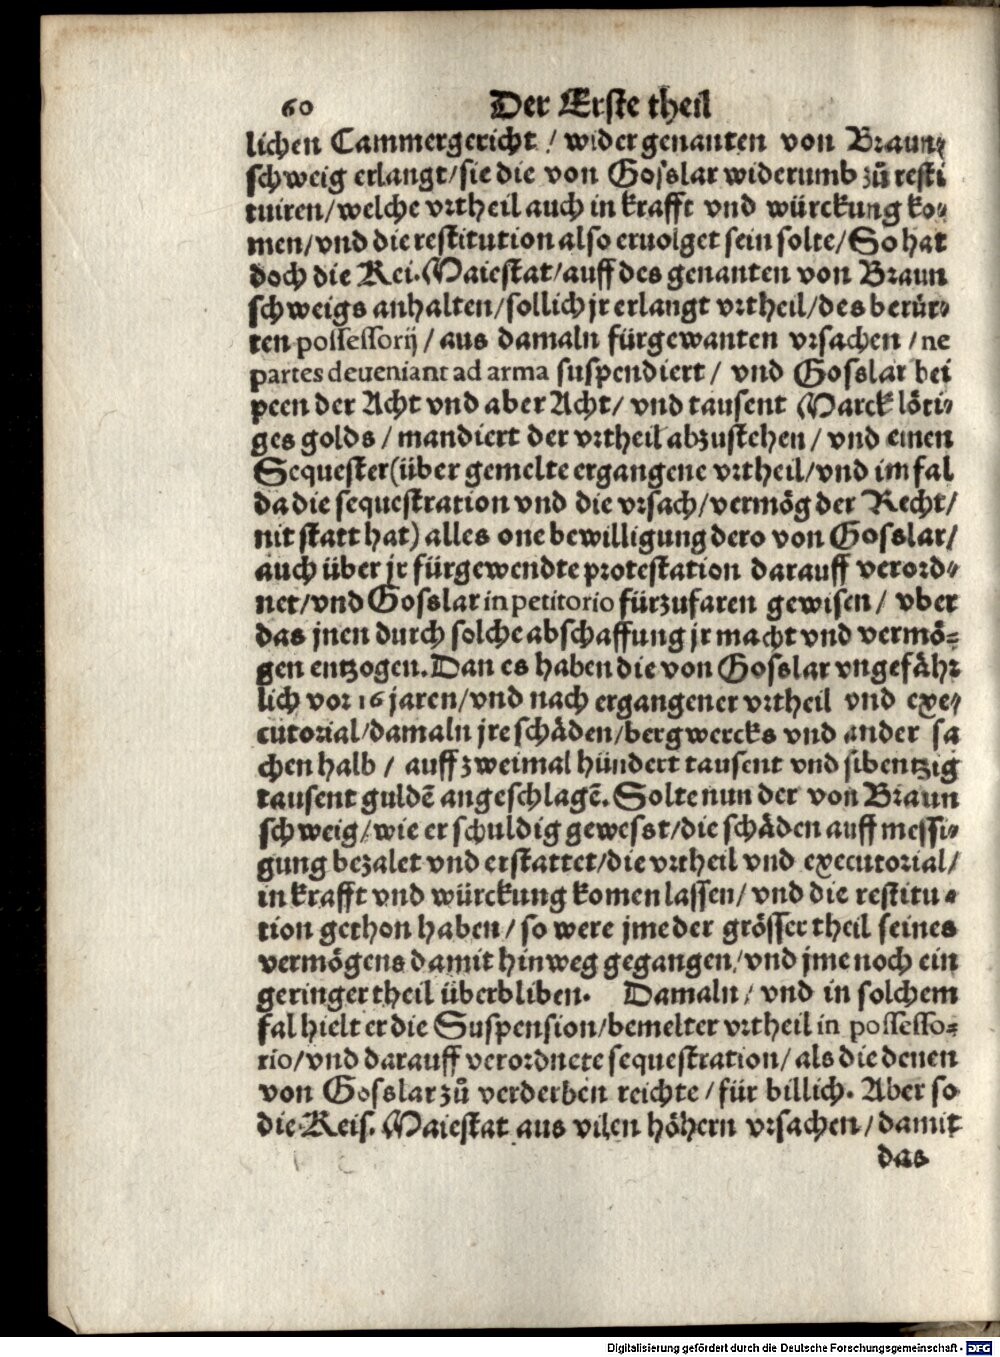 60 Der Erste theil
lichen Cammergericht / wider genanten von Braun⸗
schweig erlangt/sie die von Gosslar widerumb zů resti
tuiren/welche vrtheil auch in krafft vnd würckung ko⸗
men/vnd die restitution also eruolget sein solte/So hat
doch die Kei. Maiestat/auff des genanten von Braun
schweigs anhalten/sollich jr erlangt vrtheil/des berür⸗
ten possessorij / aus damaln fürgewanten vrsachen / ne
partes deueniant ad arma suspendiert / vnd Gosslar bei
peen der Acht vnd aber Acht/ vnd tausent Marck löti⸗
ges golds / mandiert der vrtheil abzustehen / vnd einen
Sequester(über gemelte ergangene vrtheil/vnd im fal
da die sequestration vnd die vrsach/vermög der Recht/
nit statt hat) alles one bewilligung dero von Gosslar/
auch über jr fürgewendte protestation darauff verord⸗
net/vnd Gosslar in petitorio fürzufaren gewisen / vber
das jnen durch solche abschaffung jr macht vnd vermö⸗
gen entzogen. Dan es haben die von Gosslar vngefähr
lich vor 16 jaren/vnd nach ergangener vrtheil vnd exe⸗
cutorial/damaln jre schäden/bergwercks vnd ander sa
chen halb / auff zweimal hundert tausent vnd sibentzig
tausent guldē angeschlagē. Solte nun der von Braun
schweig/wie er schuldig gewesst/die schäden auff messi⸗
gung bezalet vnd erstattet/die vrtheil vnd executorial/
in krafft vnd würckung komen lassen/ vnd die restitu⸗
tion gethon haben / so were jme der grösser theil seines
vermögens damit hinweg gegangen/vnd jme noch ein
geringer theil überbliben. Damaln / vnd in solchem
fal hielt er die Suspension/bemelter vrtheil in possesso⸗
rio/vnd darauff verordnete sequestration/ als die denen
von Gosslar zů verderben reichte / für billich. Aber so
die Keis. Maiestat aus vilen höhern vrsachen / damit
das
Digitalisierung gefördert durch die Deutsche Forschungsgemeinschaft - DFG